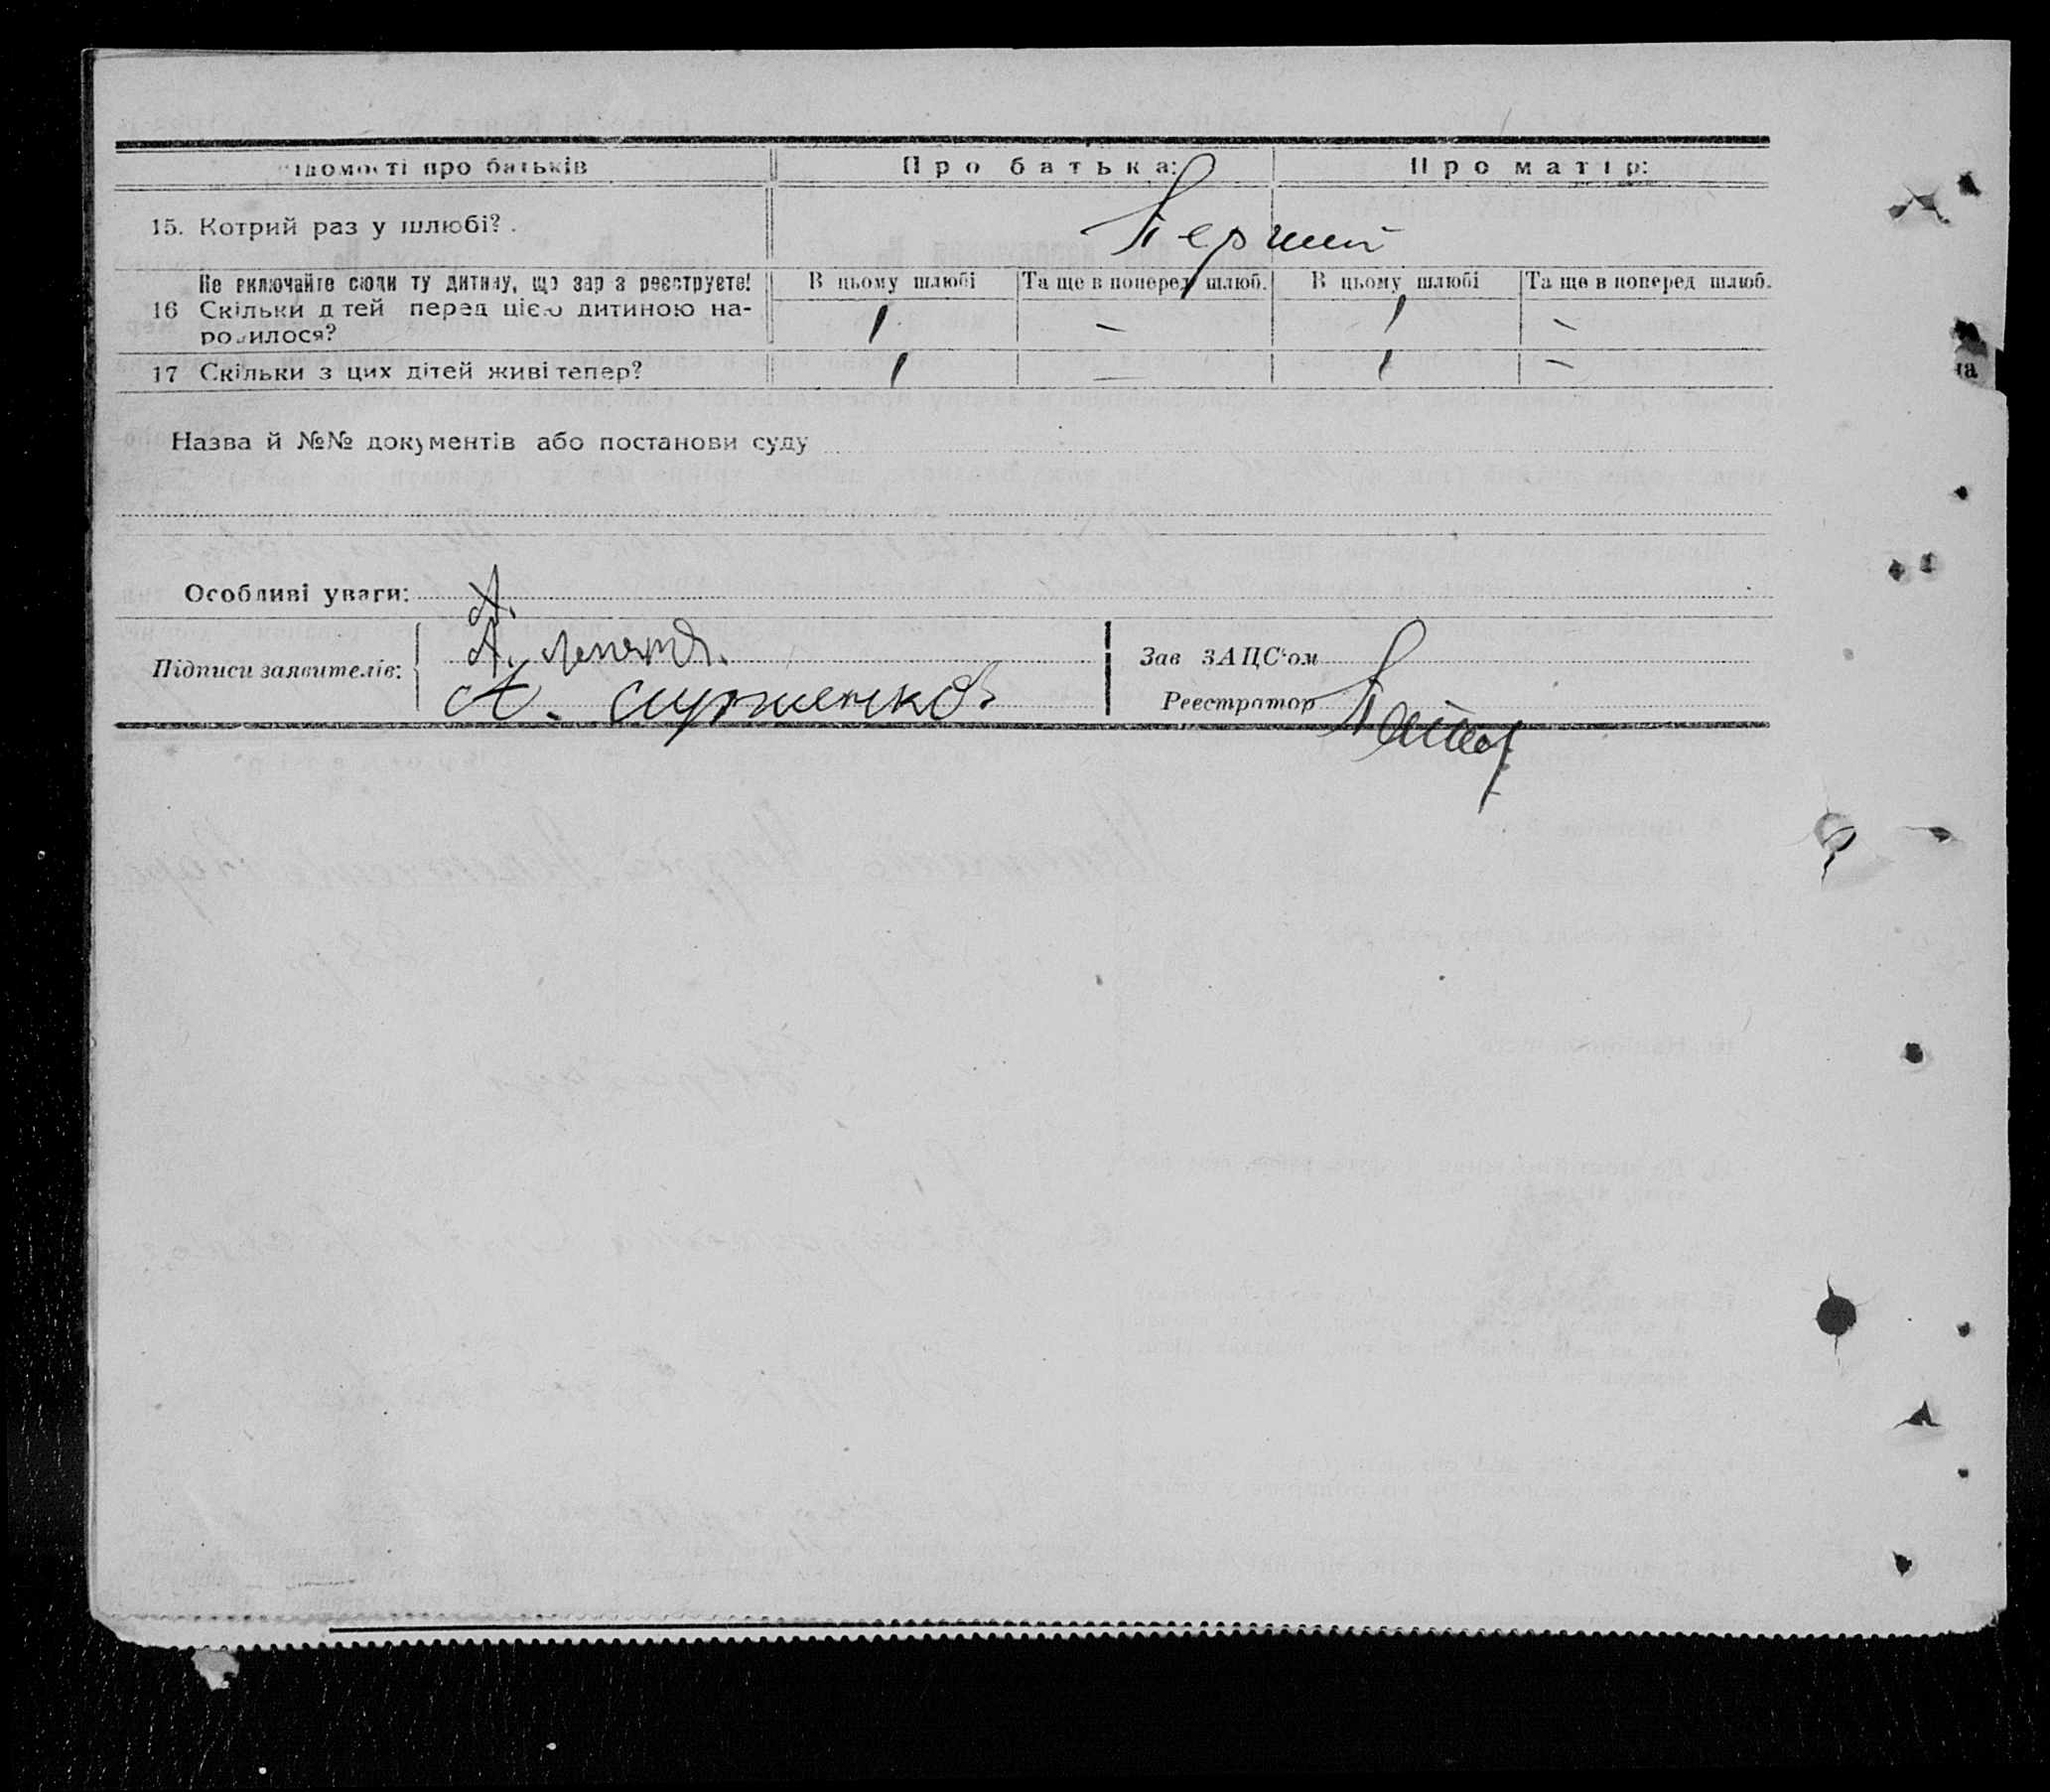 ідомості про батьків Про батька: Про матір:
15. Котрий раз у шлюбі? . Перший
Не включайте сюди ту дитину, що зараз реєструєте! В цьому шлюбі Та ще в поперед шлюб. В цьому шлюбі Та ще в поперед шлюб.
16 Скільки дітей перед цією дитиною на-
родилося? 1 — 1 —
17 Скільки з цих дітей живі тепер? 1 — 1 —
Назва й №№ документів або постанови суду
Особливі уваги: А.
Підписи заявителів: А.
А.
Зав ЗАЦС'ом
Реєстратор
на